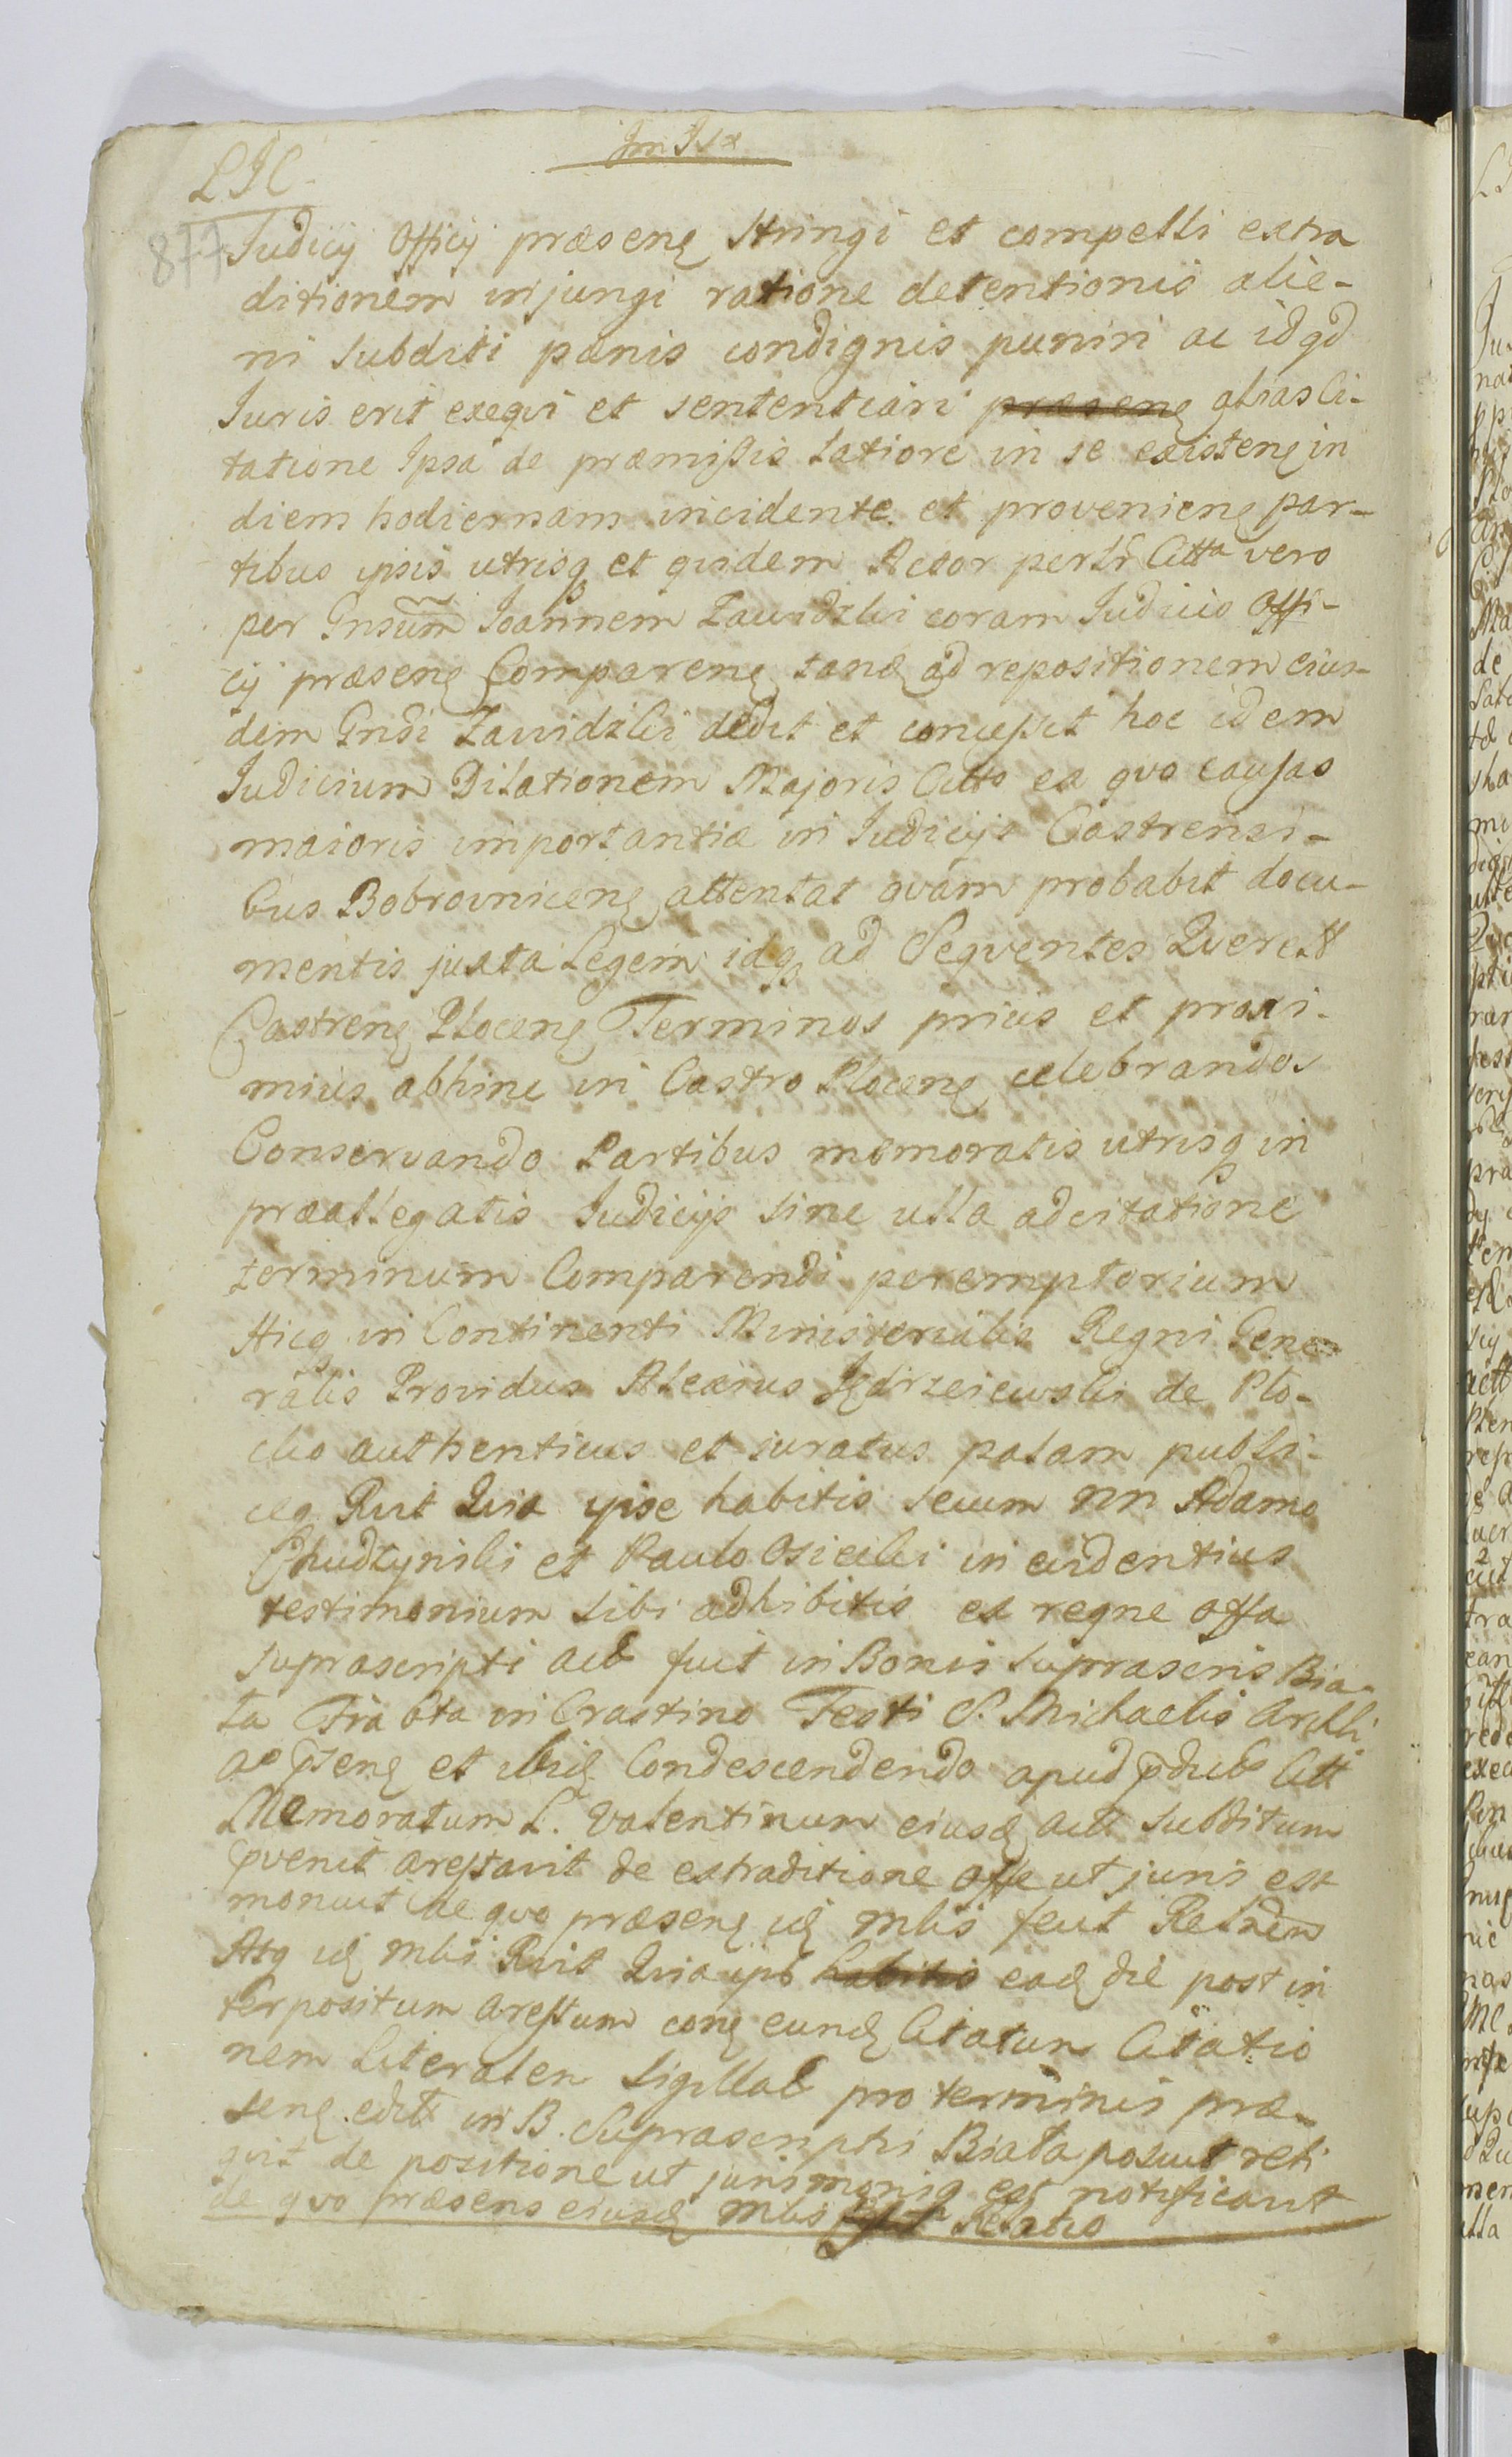 LIC
877
Judicij Officij præsenę stringi et compelli extra
ditionem injungi ratione detentionis alie-
ni subditi pænis condignis puniri ac id qd
Juris erit exeqvi et sententiari præsenę alias Ci-
tatione Ipsa de præmißis latiore in se existenę in
diem hodiernam incidente et provenienę par-
tibus ipsis utrisq et qvidem Actor per Citta vero
per Gnsum Joannem Zawidzki coram Judicio Offi-
cij præsenę Comparenę ad repositionem eius-
dem Gndi Zawidzki dedit et conceßit hoc idem
Judicium Dilationem Majoris Citto ex qvo causas
maioris importantiæ in Judicijs Castrensi-
bus Bobrovnicenę attentat qvam probabit docu-
mentis juxta Legem idq ad Seqventes Querell
Castrenę Plocenę Terminos prius et proxi-
mius abhinc in Castro Plocenę celebrandos
Conservando Partibus memoratis utrisq in
præallegatis Judicijs sine ulla adcitatione
terminum Comparendi peremptorium
Hicq in Continenti Ministerialis Regni Gene-
ralis Providus Alexius Jędrzeiewski de Plo-
cko authenticus et iuratus palam publi-
ceq Rvit Qvia ipse habitis secum nn Adamo
Chudzynski et Paulo Osiecki in evidentius
testimonium sibi adhibitis ex reqne offa
suprascripti act fuit in Bonis suprascris Bia-
ła Fria in Crastino Festi S. Michaelis Archli
ao et ibidę Condescendendo apud Citt
Memoratum L. Valentinum eiusdę Actt subditum
pvenit areßtavit de extraditione offe ut juris est
monuit de qvo præsenę idę mlis fecit Relnem
Atq idę mlis Rvit Qvia ips habitis eadę die post in
terpositum areßtum conę eundę Citatum Citatio
nem Literalem sigillat pro terminis præ-
senę edit in B. Suprascriptis Biała posuit reli
qvit de positione ut juris moriq est notificavit
de qvo præsens eiusdę mlis Relatio